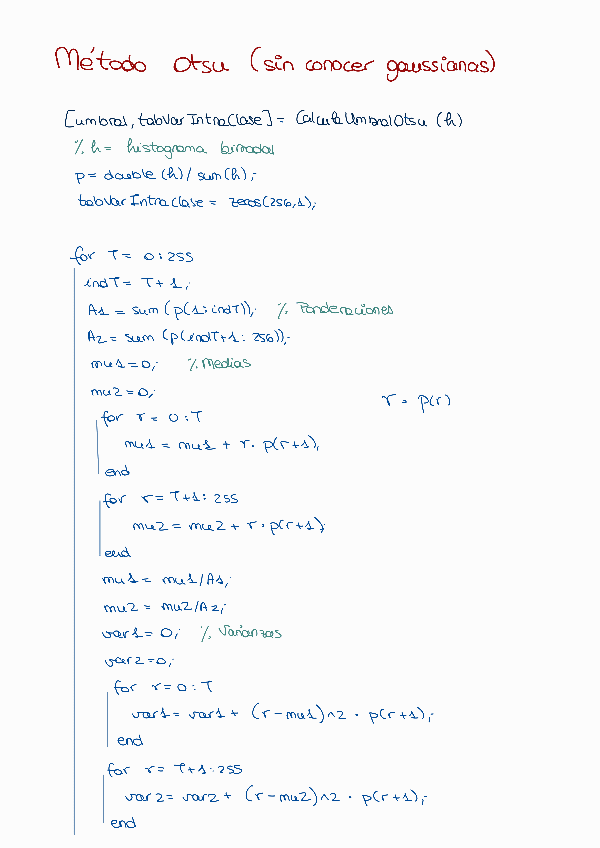 Método Otsu (sin conocer gaussianas)
[umbral, tabVarIntraClase] = CalculaUmbralOtsu (h)
% h = histograma bimodal
p = double (h) / sum(h);
tabVarIntraClase = zeros(256,1);
for T = 0:255
indT = T + 1;
A1 = sum (p(1:indT)); % Ponderaciones
A2 = sum (p(indT+1:256));
mu1 = 0; % Medias
mu2 = 0;
r · p(r)
for r = 0:T
mu1 = mu1 + r · p(r+1);
end
for r = T+1:255
mu2 = mu2 + r · p(r+1);
end
mu1 = mu1/A1;
mu2 = mu2/A2;
var1 = 0; % Varianzas
var2 = 0;
for r = 0:T
var1 = var1 + (r-mu1)^2 · p(r+1);
end
for r = T+1:255
var2 = var2 + (r-mu2)^2 · p(r+1);
end